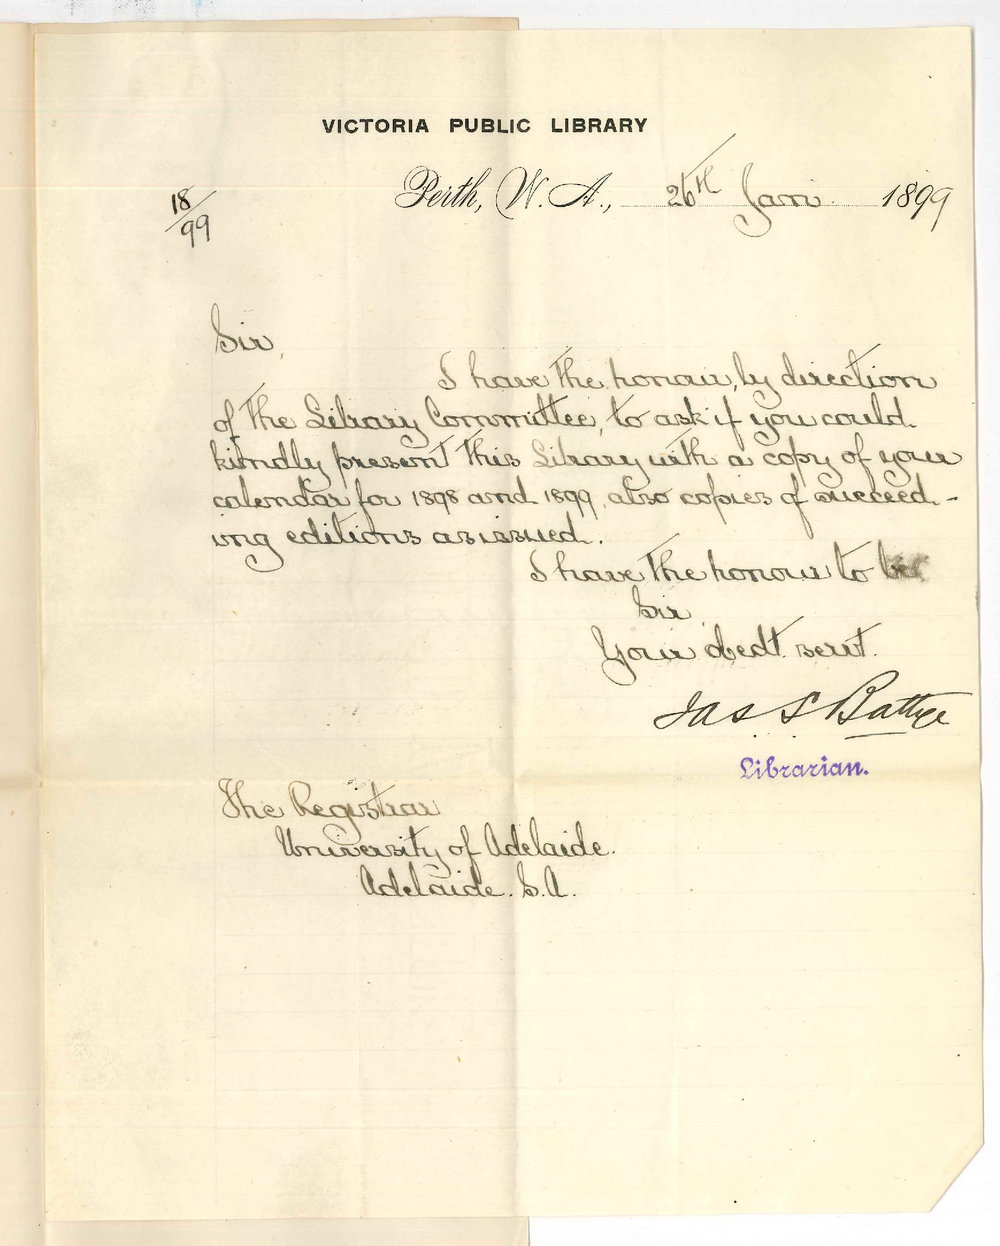 VICTORIA PUBLIC LIBRARY
18/99
Perth, W. A., 26th Jan 1899
Sir,
I have the honour, by direction
of the Library Committee, to ask if you could
kindly present this Library with a copy of your
calendar for 1898 and 1899, also copies of succeed-
ing editions as issued.
I have the honour to be
Sir,
Your obedt. servt.
Jas S Battye
Librarian.
The Registrar
University of Adelaide.
Adelaide. S.A.